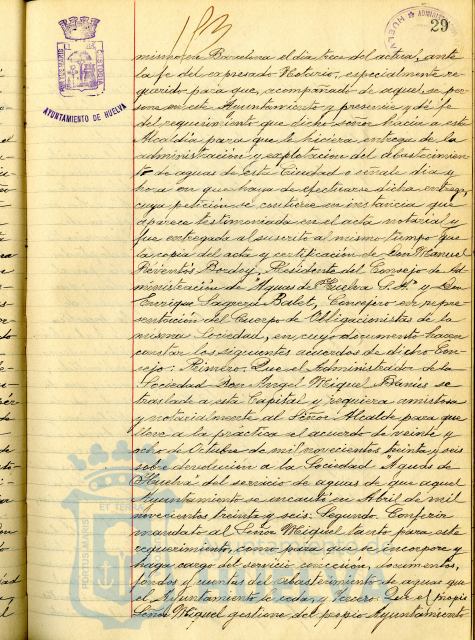 153
29
AYUNTAMIENTO DE HUELVA
mismo en Barcelona el dia trece del actual, ante
la fé del expresado Notario, especialmente re-
querido para que, acompañado de aquel, se per-
sone en este Ayuntamiento y presencie y dé fé
del requerimiento que dicho señor hacia a esta
Alcaldía para que le hiciera entrega de la
administración y explotación del abastecimien-
to de aguas de esta Ciudad o señale dia y
hora en que haya de efectuarse dicha entrega,
cuya petición se contiene en instancia que
aparece testimoniada en el acta notarial y
fue entregada al suscrito al mismo tiempo que
la copia del acta y certificación de Don Manuel
Reventós Bordoy, Presidente del Consejo de Ad-
ministración de Aguas de Huelva S.A. y Don
Enrique Sagrera Balet, Consejero en repre-
sentación del Cuerpo de Obligacionistas de la
misma Sociedad, en cuyo documento hacen
constar los siguientes acuerdos de dicho Con-
sejo: Primero. Que el Administrador de la
Sociedad Don Angel Miguel se
traslade a esta Capital y requiera amistosa
y notarialmente al Señor Alcalde para que
lleve a la práctica el acuerdo de veinte y
ocho de Octubre de mil novecientos treinta y seis
sobre devolución a la Sociedad Aguas de
Huelva del servicio de aguas de que aquel
Ayuntamiento se incautó en Abril de mil
novecientos treinta y seis: Segundo. Conferir
mandato al Señor Miguel tanto para este
requerimiento, como para que se incorpore y
haga cargo del servicio concesión, documentos,
fondos y cuentas del abastecimiento de aguas que
el Ayuntamiento le ceda; y Tercero. Que el propio
Señor Miguel gestione del propio Ayuntamiento